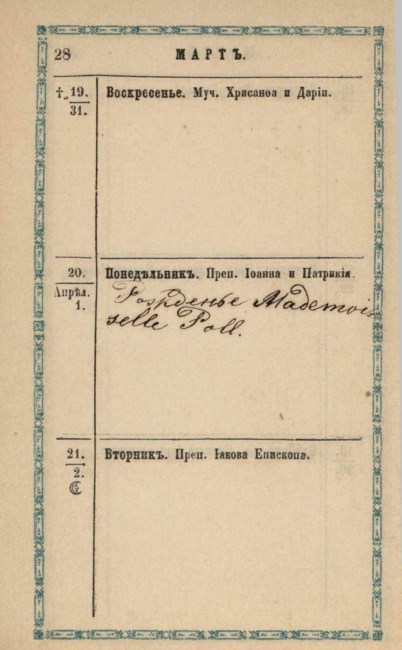 28
МАРТЪ.
†. 19.
31.
Воскресенье. Муч. Хрисанѳа и Даріи.
20.
Апрѣл.
1.
Понедѣльникъ. Преп. Іоанна и Патрикія.
Рожденье Mademoi-
selle Poll.
21.
2.
Вторникъ. Преп. Іакова Епископа.